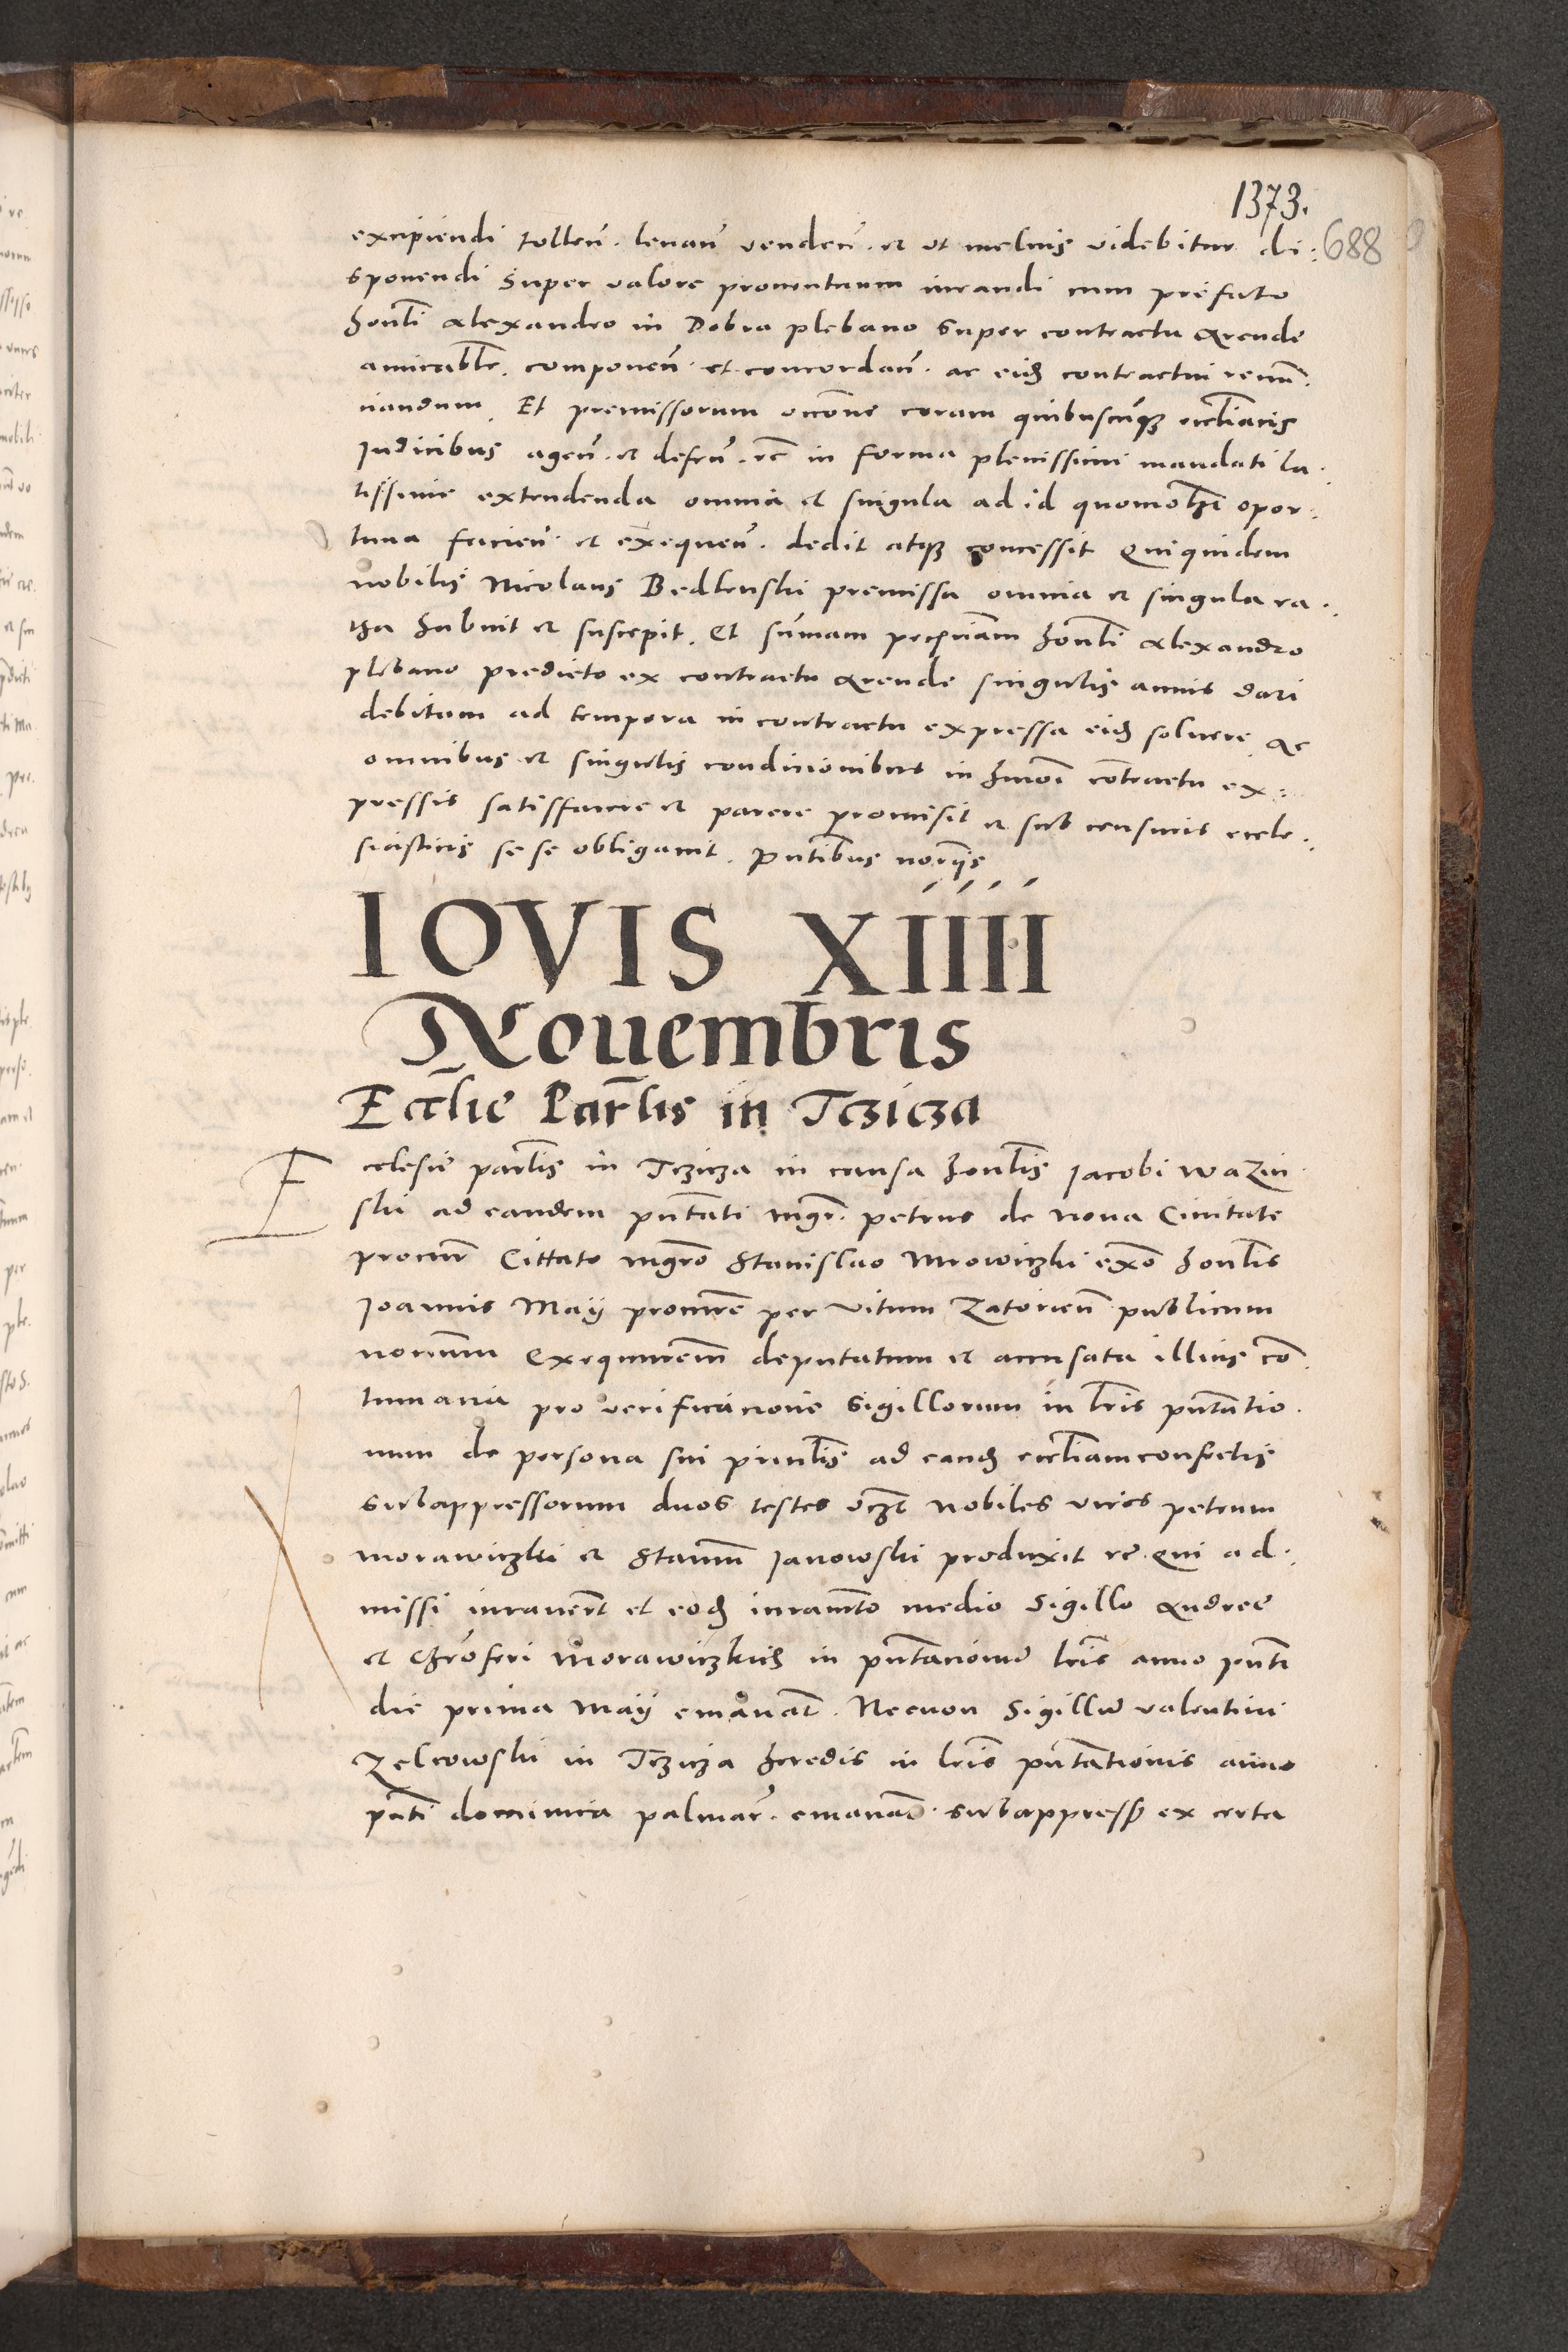 1373.
excipiendi tollen̄. levan̄ venden̄. et ut melius videbitur di: 688
sponendi Super valore proventuum iurandi cum prefato
honᵬli Alexandro in Dobra plebano Super contractu Arende
amicabᵬlr. componen̄. et concordan̄. ac eidꝫ contractui renūn:
ciandum Et premissorum occōne coram quibuscūqꝫ eccᵬliaticis
Judicibus agen̄. et defen̄. etc̄ in forma plenissimi mandati la.
tissime extendenda omnia et singula ad id quomōᵬlt opor:
tuna facien̄. et exequen̄. dedit atqꝫ concessit Quiquidem
nobilis Nicolaus Bedlenski premissa omnia et singula ra.
tha habuit et suscepit. Et sum̄am pecun̄iam honᵬli Alexandro
plebano predicto ex contractu Arende singulis annis dari
debitam ad tempora in contractu expressa eidꝫ solvere Ac
omnibus et singulis condicionibus in hmōi con̄tractu ex:
pressis satisffacere et parere promisit et sub censuris eccle:
siasticis se se obligavit. pn̄tibus nor̄ijs
IOVIS XIIII
Nouembris
Eccl̄ie Par̄lis in Tczicza
Ecclesie par̄lis in Tczicza in causa honᵬlis Jacobi Wazin
ski ad eandem pn̄tati mgr̄. petrus de nova Civitate
procur̄ Cittato mgr̄o Stanislao Mrowiczki ex̄o honᵬlis
Joannis Maij procur̄e per Vitum Zatorien̄ publicum
norium̄ Exequutrem̄ deputatum et accusata illius cō
tumacia pro verificacione Sigillorum in lr̄is pn̄tatio.
num de persona sui prin̄lis ad eandꝫ eccl̄iam confectis
Subappressorum duos testes vꝫt Nobiles viros petrum
morawiczki et Stan̄um Janowski produxit etc̄. Qui ad:
missi iuraverūt et eodꝫ iuramēto medio Sigillo Andree
et Chrōferi Morawiczkich in pn̄tacionū lr̄is anno pn̄ti
die prima Maij emanat̄. Necnon Sigillū valentini
Zeleowski in Tczicza heredis in lr̄is pn̄tationis anno
pn̄ti dominica palmar̄. emanat̄. Subappress̄ ex certa